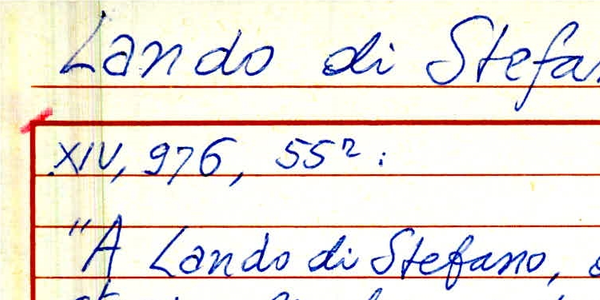 Lando di Stefa
XIV, 976, 55²:
"A Lando di Stefano,